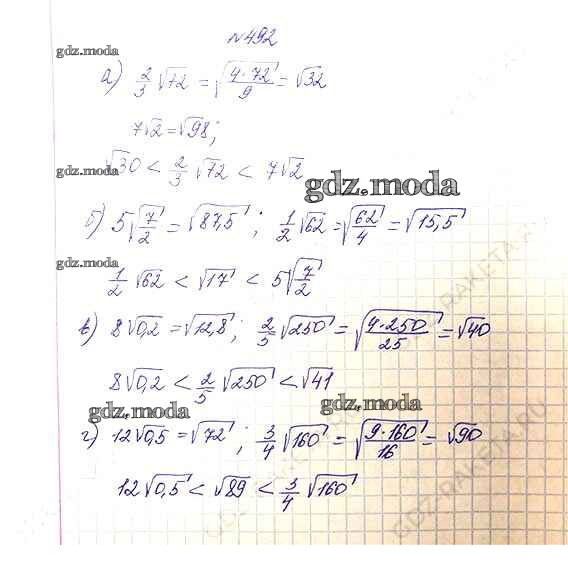 №492
gdz.moda
а) 2/3 √72 = √(4·72/9) = √32
7√2 = √98;
gdz.moda
√30 < 2/3 √72 < 7√2
gdz.moda
б) 5√(7/2) = √87,5; 1/2 √62 = √(62/4) = √15,5
gdz.moda
1/2 √62 < √17 < 5√(7/2)
в) 8√0,2 = √12,8; 2/5 √250 = √(4·250/25) = √40
8√0,2 < 2/5 √250 < √41
gdz.moda gdz.moda
г) 12√0,5 = √72; 3/4 √160 = √(9·160/16) = √90
12√0,5 < √89 < 3/4 √160
GDZ-RAKETA.RU
GDZ-RAKETA.RU